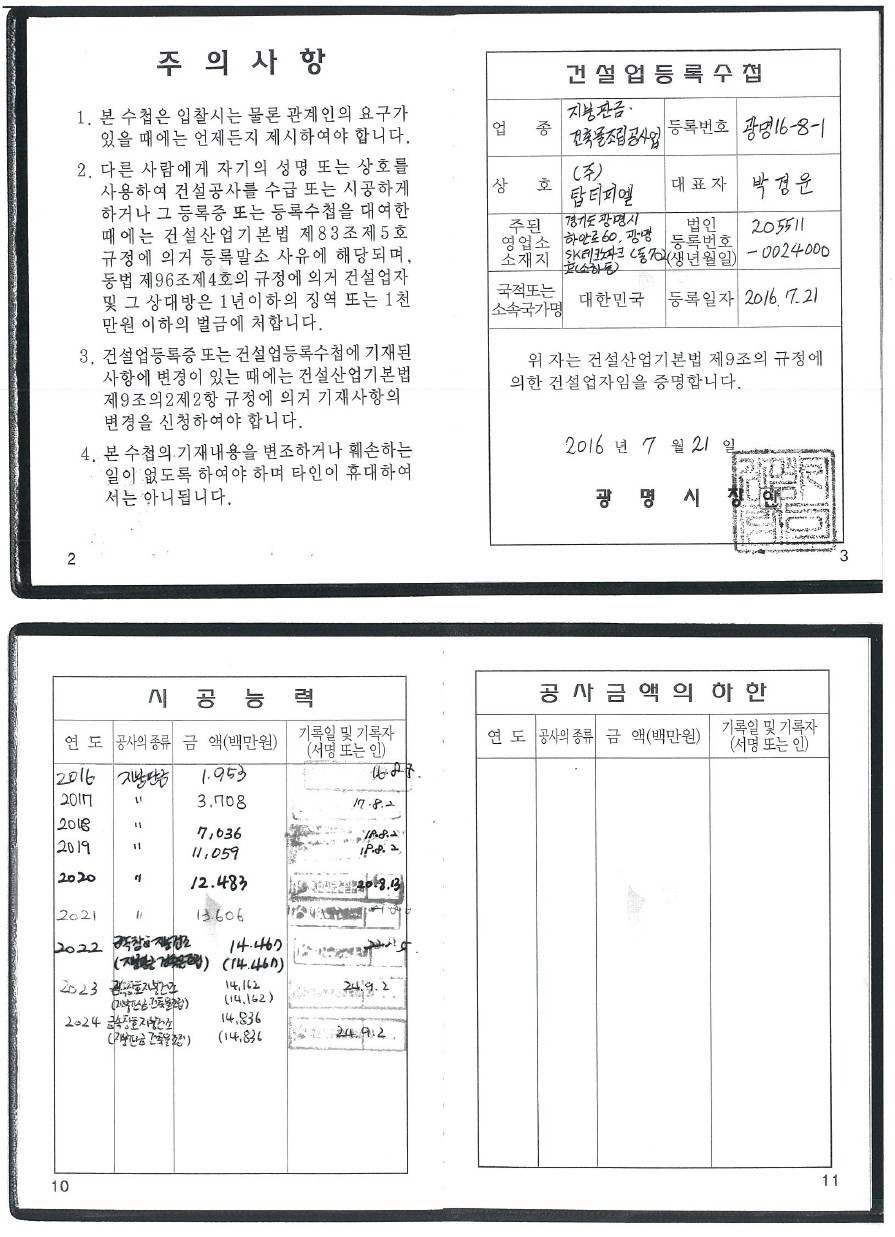 주 의 사 항
1. 본 수첩은 입찰시는 물론 관계인의 요구가
있을 때에는 언제든지 제시하여야 합니다.
2. 다른 사람에게 자기의 성명 또는 상호를
사용하여 건설공사를 수급 또는 시공하게
하거나 그 등록증 또는 등록수첩을 대여한
때에는 건설산업기본법 제83조제5호
규정에 의거 등록말소 사유에 해당되며,
동법 제96조제4호의 규정에 의거 건설업자
및 그 상대방은 1년이하의 징역 또는 1천
만원 이하의 벌금에 처합니다.
3. 건설업등록증 또는 건설업등록수첩에 기재된
사항에 변경이 있는 때에는 건설산업기본법
제9조의2제2항 규정에 의거 기재사항의
변경을 신청하여야 합니다.
4. 본 수첩의 기재내용을 변조하거나 훼손하는
일이 없도록 하여야 하며 타인이 휴대하여
서는 아니됩니다.
2
건설업등록수첩
업 종 지붕판금· 건축물조립공사업 등록번호 광명16-8-1
상 호 (주) 탑티피엘 대표자 박경운
주된 영업소 소재지 경기도 광명시 하안로60, 광명 SK테크노파크 (소하동)
법인 등록번호 (생년월일) 205511 -0024000
국적또는 소속국가명 대한민국 등록일자 2016.7.21
위 자는 건설산업기본법 제9조의 규정에
의한 건설업자임을 증명합니다.
2016 년 7 월 21 일
광 명 시 장 인
3
시 공 능 력
연 도 공사의 종류 금 액(백만원) 기록일 및 기록자 (서명 또는 인)
2016 지붕판금 1.953 16.8.8.
2017 〃 3,708 17.8.2
2018 〃 7,036 18.8.2
2019 〃 11,059 19.8.2
2020 〃 12.483 20.8.13
2021 〃 13.606
2022 금속창호지붕건조 14.467
(지붕판금 건축물조립) (14.467)
2023 금속창호지붕건조 14,162 24.9.2
(지붕판금 건축물조립) (14.162)
2024 금속창호지붕건조 14,836
(지붕판금 건축물조립) (14,836 24.9.2
10
공사금액의 하한
연 도 공사의 종류 금 액(백만원) 기록일 및 기록자 (서명 또는 인)
11